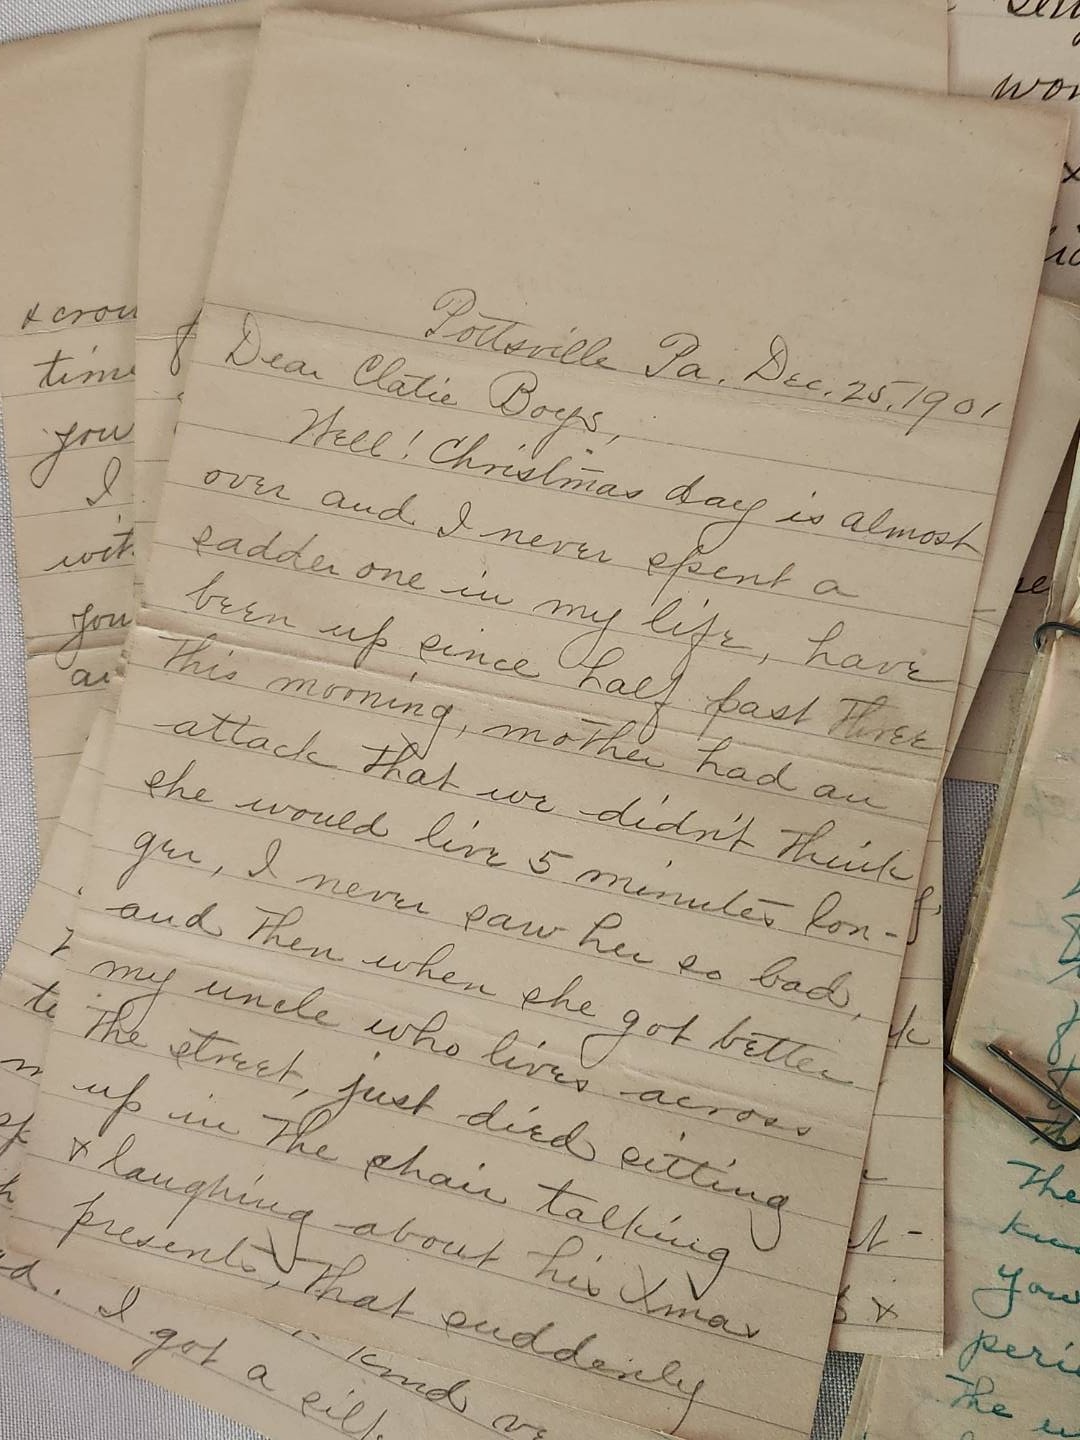 Pottsville Pa. Dec. 25, 1901
Dear Clatie Boys,
Well! Christmas day is almost
over and I never spent a
sadder one in my life, have
been up since half past three
this mooning, mother had an
attack that we didn't think
she would live 5 minutes lon-
ger, I never saw her so bad,
and then when she got better
my uncle who lives across
the street, just died sitting
up in the chair talking
& laughing about his Xmas
presents, that suddenly
& crow
time
you
I
with
you
kind
I got a silk
The
you
The